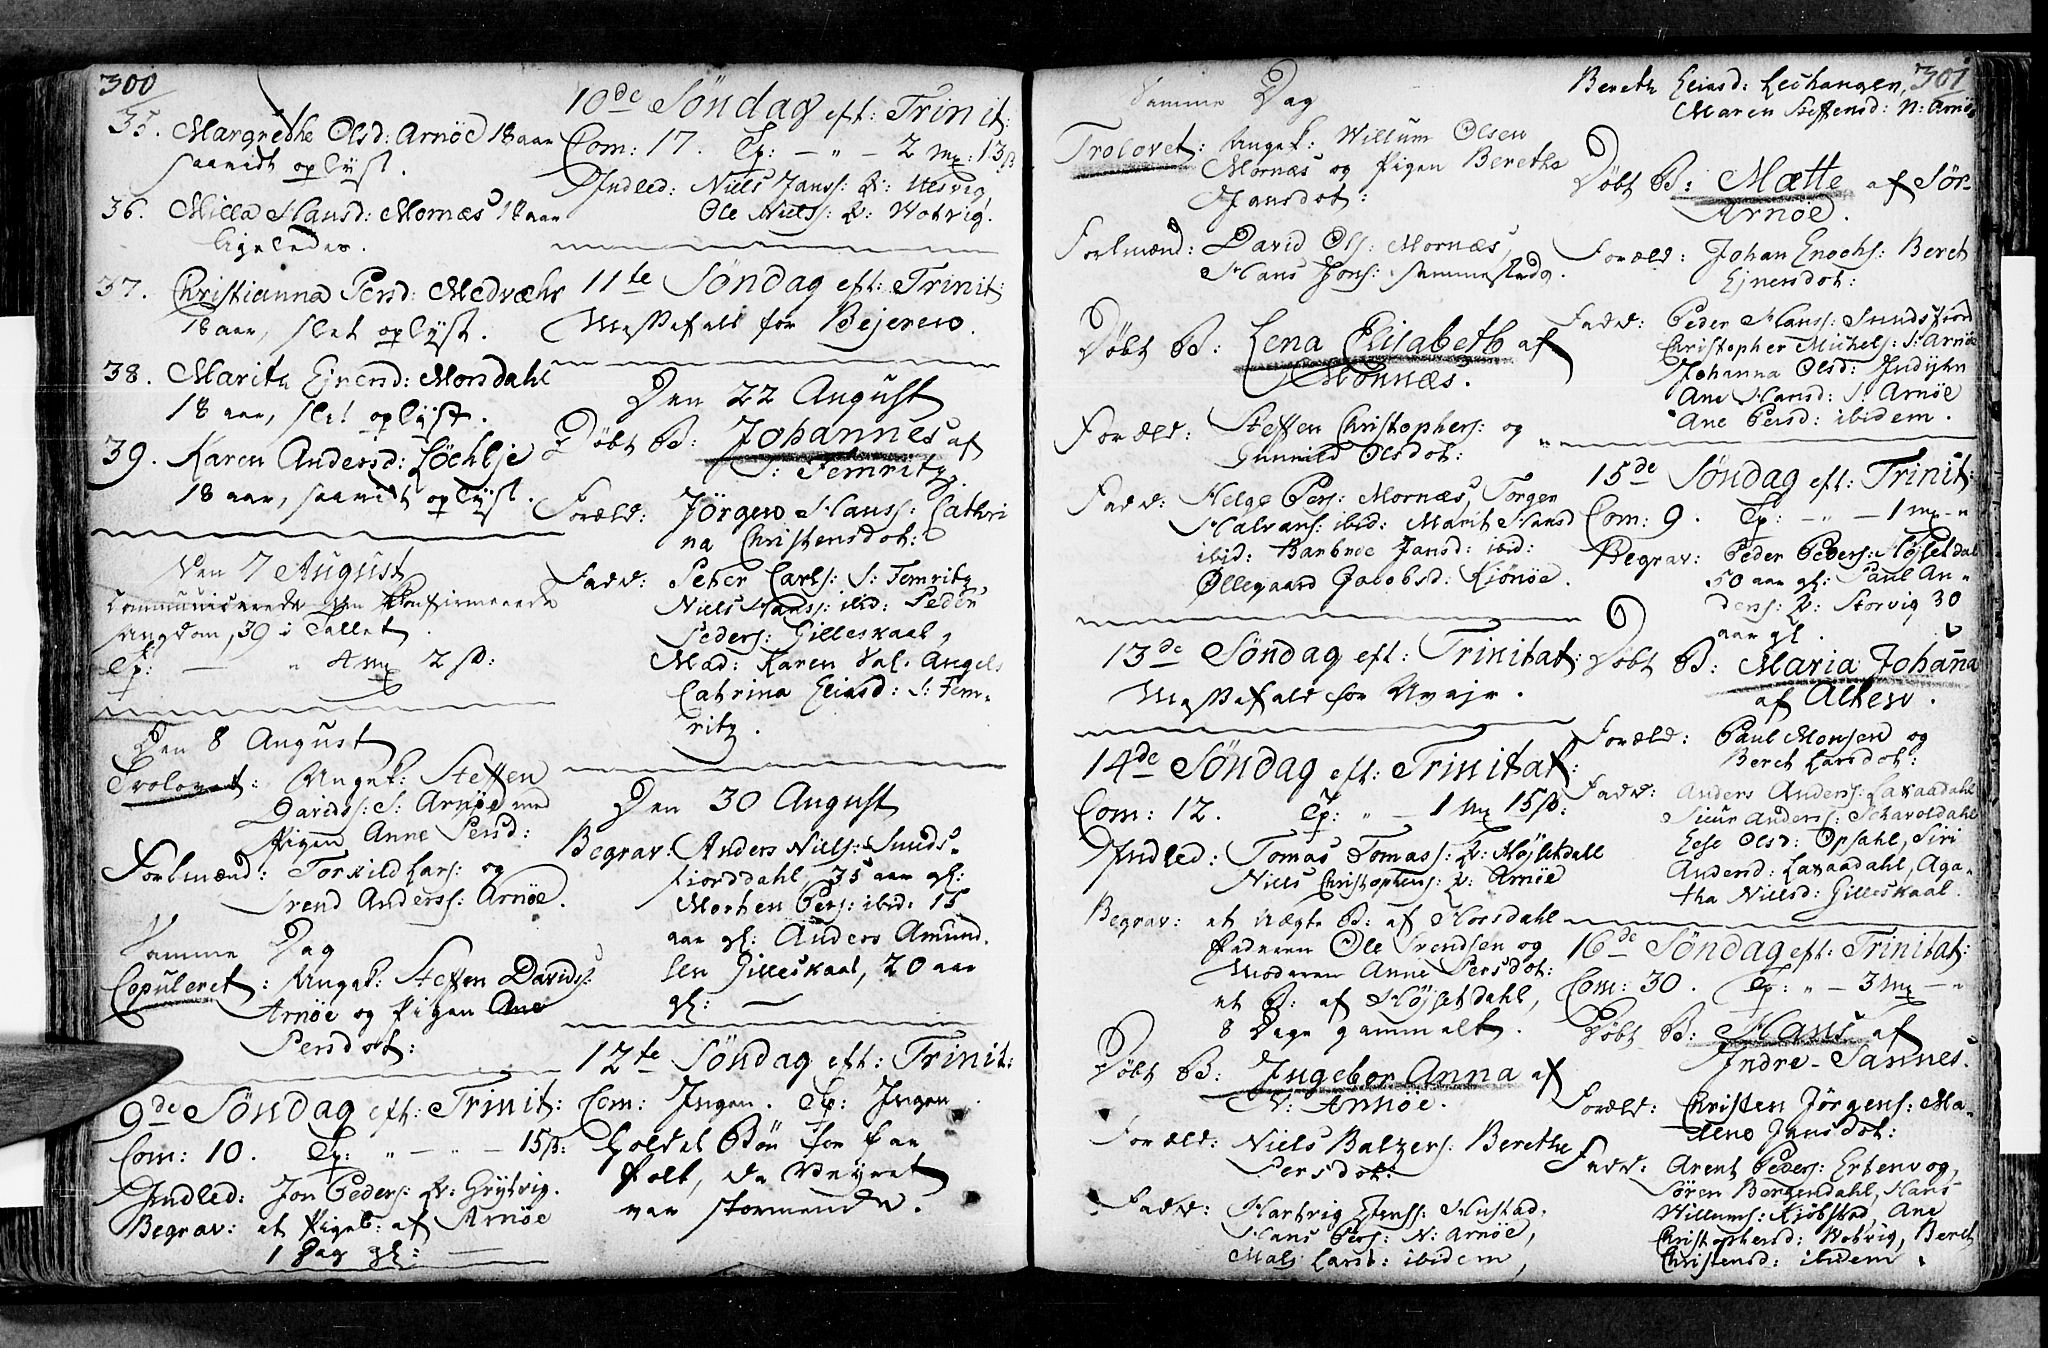 300
35. Margrethe Olsd: Arnöe 18 aar
saavidt oplyst.
36. Milla Hansd: Mornæs 18 aar
ligeledes.
37. Christianna Persd: Medvæhr
18 aar, slet oplyst.
38. Marita Ejnersd: Morsdahl
18 aar, slet oplyst.
39. Karen Andersd: Löchlje
18 aar, saavidt oplyst.
Den 7 August
communicerede den Confirmerede
Ungdom, 30 i Tallet.
Tp: — " 4 mk 2 sk:
Den 8 August
Trolovet: Ungk: Steffen
Davids: S: Arnöe med
Pigen Anne Persd:
Forlmænd: Torkild Lars: og
Trend Anderss: Arnöe.
Samme Dag
Copuleret: Ungk: Steffen Davids:
Arnöe og Pigen Ane
Persdot:
9de Söndag eft: Trinit:
Com: 10. Tp: " — " — 15 sk:
Indled: Jon Peders: K: Grytvig.
Begrav: et Pigeb: af Arnöe
1 Dag gl: —
10de Söndag eft: Trinit:
Com: 17. Tp: — " — 2 mk: 13 sk
Indled: Niels Janss: K: Ulsvig
Ole Niels: K: Wotvig.
11te Söndag eft: Trinit:
Messefald for Bejeren.
Den 22 August
Döbt B: Johannes af
S: Femritz.
Foræld: Jörgen Hanss: Cathri
na Christensdot:
Fadd: Peter Carls: S: Femritz
Niels Hanss: ibid: Peder
Peders: Gilleskaal,
Mad: Karen Sal. Angels
Catrina Eliasd: S: Fem-
ritz.
Den 30 August
Begrav: Anders Niels: Sunds-
fjorddahl, 35 aar gl:
Morten Pers: ibid: 15
aar gl: Anders Amund
sen Gilleskaal, 20 aar
gl: —
12te Söndag eft: Trinit:
Com: Ingen. Tp: Ingen
Holdet Bön for faa
Folk, da Vejret
var stormende.
Samme Dag
Trolovet: Ungk: Willum Olsen
Mornæs og Pigen Berethe
Jansdot:
Forlmænd: David Ols: Mornæs,
Hans Jons: sammesteds.
Döbt B: Lena Elisabeth af
Mornæs.
Foræld: Steffen Christophers: og
Gunnild Olsdot:
Fadd: Helge Pers: Mornæs, Torger
Halvars: ibid: Marit Hansd
ibid: Barbroe Jansd: ibid:
Öllegaard Jacobsd: Kjönöe.
13de Söndag eft: Trinitat:
Messefald for Uvejr.
14de Söndag eft: Trinitat:
Com: 12. Tp: " — 1 mk 15 sk:
Indled: Tomas Tomass: K: Höjsetdall
Niels Christophers: K: Arnöe
Begrav: et uægte B: af Morsdahl
Faderen Ole Trendsen og
Moderen Anne Persdot:
et B: af Höjsetdahl,
8 Dage gammelt.
Döbt B: Ingebor Anna af
N: Arnöe.
Foræld: Niels Balzers: Berethe
Persdot:
Fadd: Hartvig Jenss: Mustad.
Hans Pers: N: Arnöe,
Mals Larsd: ibidem,
301
Bereth Eliasd: Leehangen,
Maren Steffensd: N: Arnöe.
Döbt B: Mætte af Sör-
Arnöe.
Foræld: Johan Enochs: Beret
Ejnersdot:
Fadd: Peder Hanss: Sundsfiord
Christopher Michels: S: Arnöe
Johanna Olsd: Indijhr
Ane Hansd: S: Arnöe
Ane Persd: ibidem.
15de Söndag eft: Trinit:
Com: 9. Tp: — " — 1 mk — "
Begrav: Peder Peders: Höjsetdal
50 aar gl: Paul An-
ders: K: Storvig 30
aar gl.
Döbt B: Maria Johanna
af Alten.
Foræld: Paul Monsen og
Beret Larsdot:
Fadd: Anders Anders: Laxaadahl
Siur Anders: Schavoldahl
Else Olsd: Opsahl, Siri
Andersd: Laxaadahl, Aga-
tha Nielsd: Gilleskaal.
16de Söndag eft: Trinitat:
Com: 30. Tp: " — 3 mk — "
Döbt B: Hans af
Indre-Sannes.
Foræld: Christen Jörgens: Ma-
lene Jansdot:
Fadd: Arent Peders: Ertenvog,
Sören Borgendahl, Hans
Willums: Kjöbstad, Ane
Christophersd: Wotvig, Beret
Christensd: ibidem.